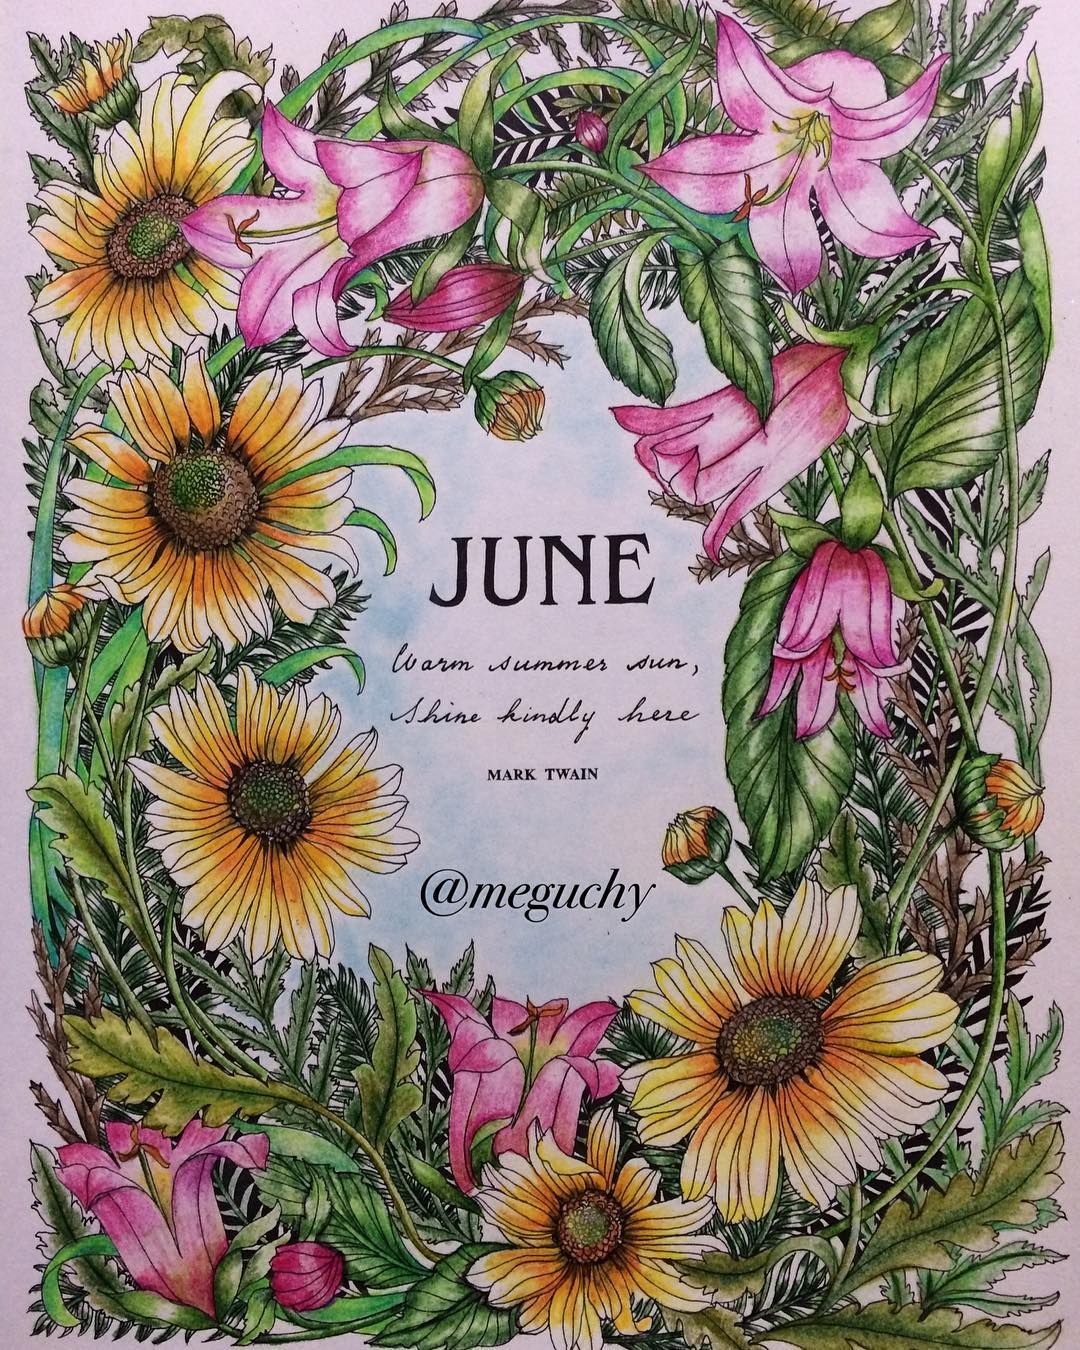 JUNE
Warm summer sun,
Shine kindly here
MARK TWAIN
@meguchy